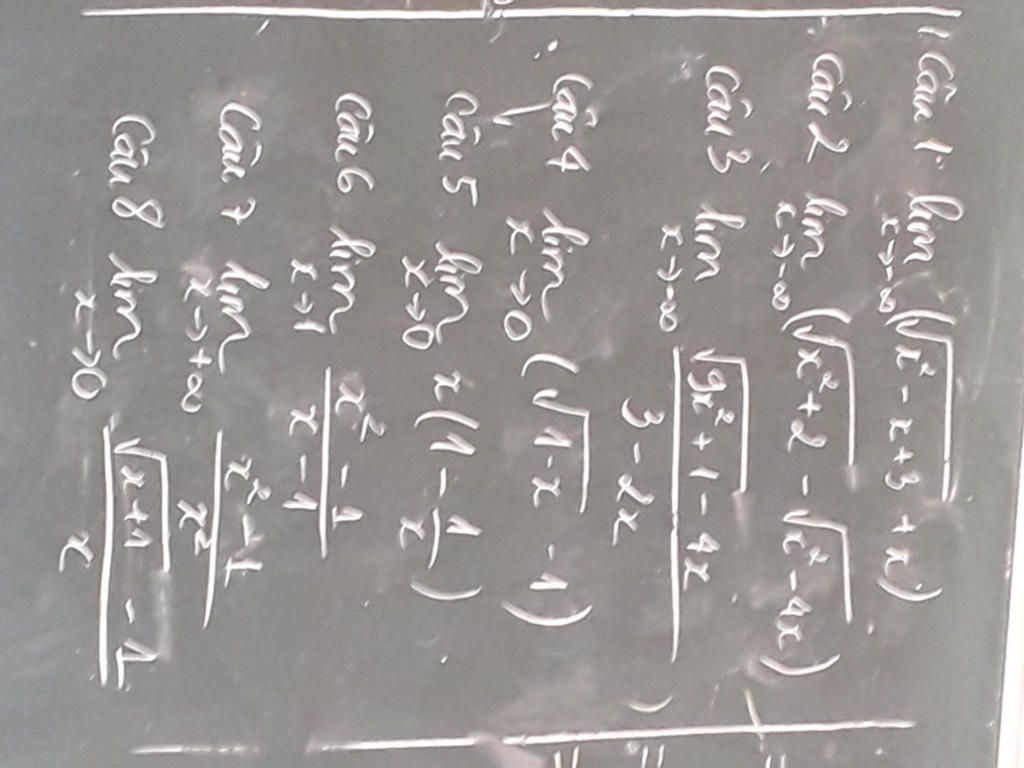 Câu 1. lim x→-∞ (√(x² - x + 3) + x)
Câu 2 lim x→-∞ (√(x² + 2) - √(x² - 4x))
Câu 3 lim x→-∞ (√(9x² + 1) - 4x) / (3 - 2x)
Câu 4 lim x→0 (√(1 - x) - 1)
Câu 5 lim x→0 x(1 - 1/x)
Câu 6 lim x→1 (x² - 1) / (x - 1)
Câu 7 lim x→+∞ (x² - 1) / x²
Câu 8 lim x→0 (√(x + 1) - 1) / x